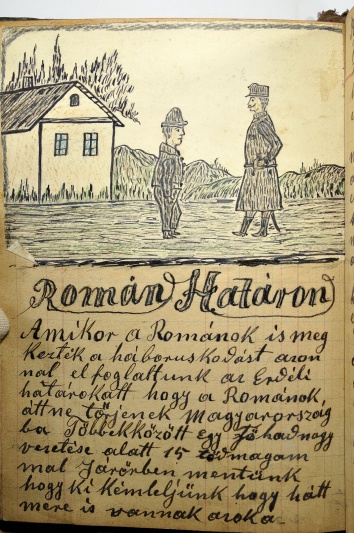 Román Határon
Amikor a Románok is meg
kezték a háboruskodást azon
nal el foglattunk az Erdéli
határokatt hogy a Románok
átt ne törjenek Magyarország
ba Többekközött egy Föhadnagy
vezetése alatt 15 magam
mal Járörben mentünk
hogy ki kémleljünk hogy hátt
mere is vannak azoka